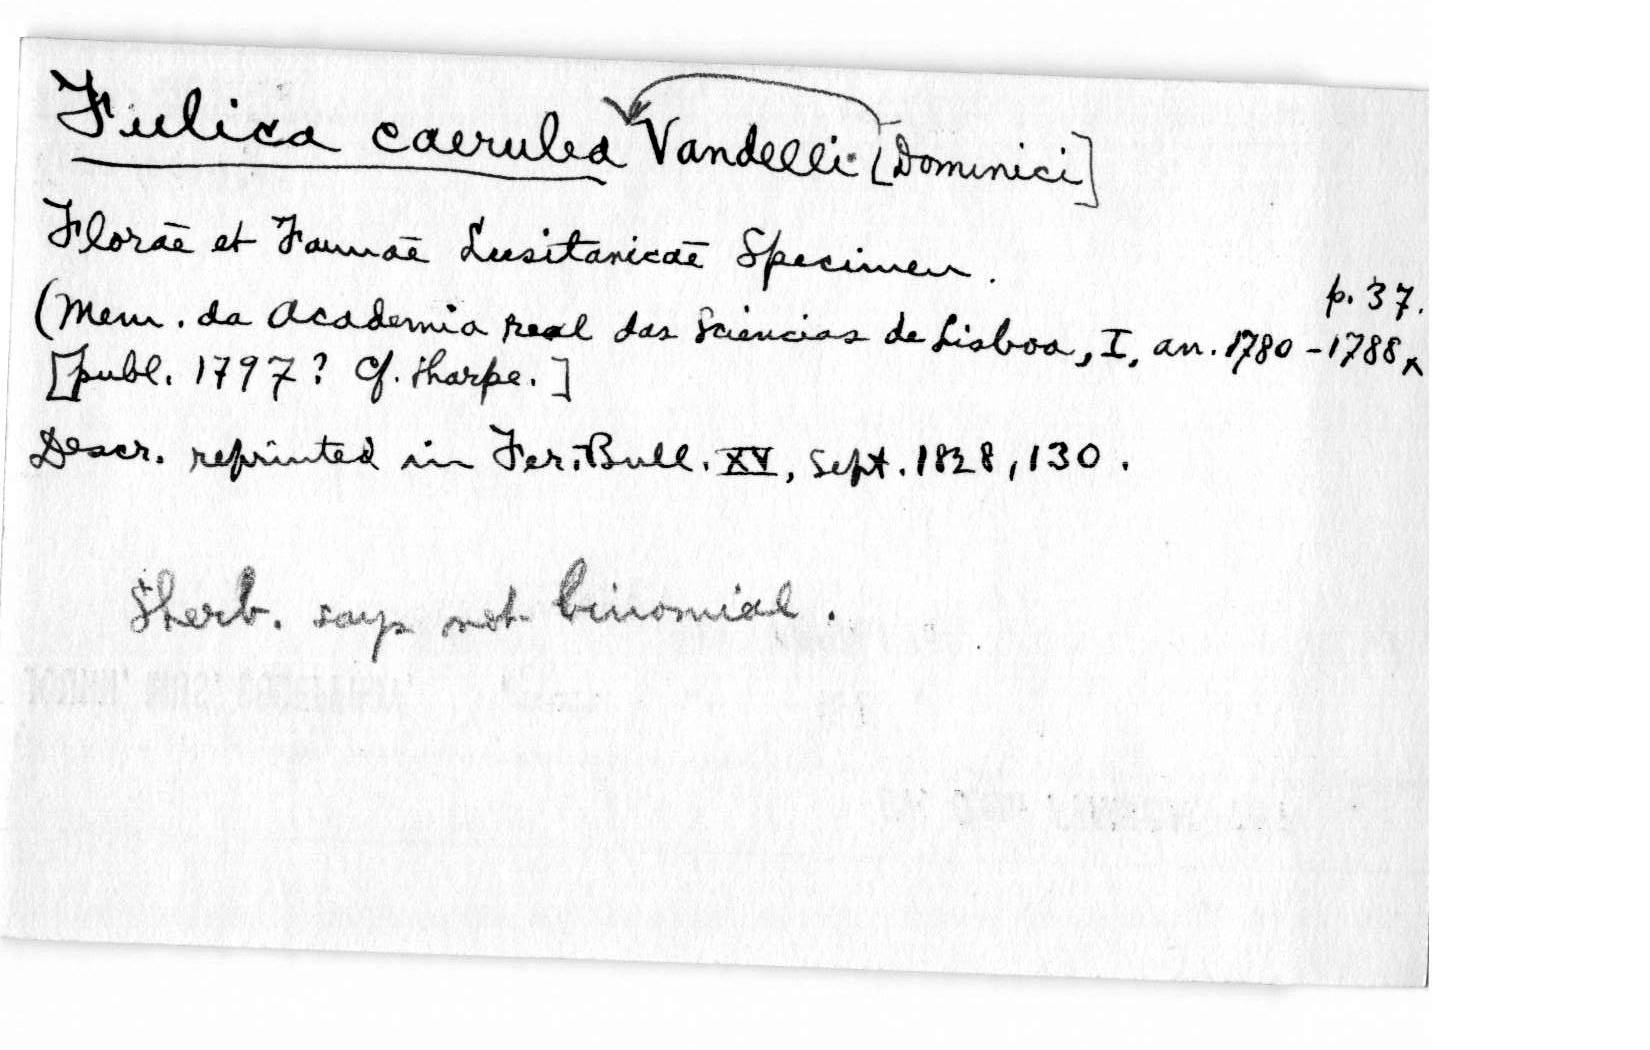 Fulica caerulea Vandelli [Dominici]
Florae et Faunae Lusitanicae Specimen.
(Mem. da Academia real das Sciencias de Lisboa, I, an. 1780-1788, p. 37.
[publ. 1797? Cf. Sharpe.]
Descr. reprinted in Fer. Bull. XV, Sept. 1828, 130.
Sherb. says not binomial.